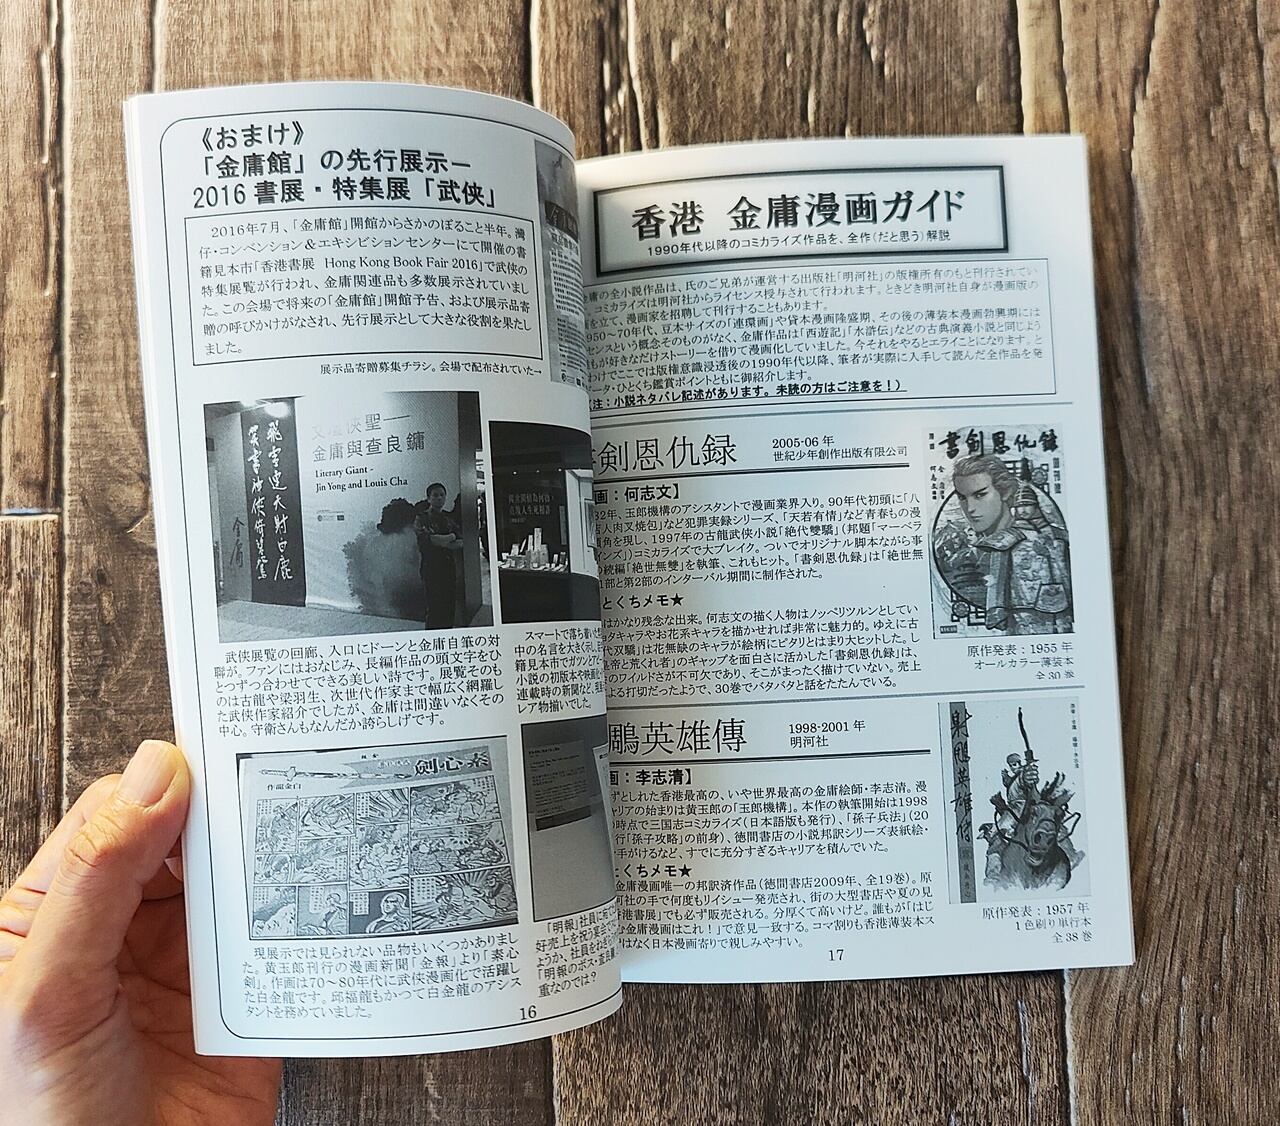 《おまけ》
「金庸館」の先行展示ー
2016 書展・特集展「武侠」
2016年7月、「金庸館」開館からさかのぼること半年。灣
仔・コンベンション＆エキシビションセンターにて開催の書
籍見本市「香港書展 Hong Kong Book Fair 2016」で武侠の
特集展覧が行われ、金庸関連品も多数展示されていまし
た。この会場で将来の「金庸館」開館予告、および展示品寄
贈の呼びかけがなされ、先行展示として大きな役割を果たし
ました。
展示品寄贈募集チラシ。会場で配布されていた→
飛雪連天射白鹿
笑書神俠倚碧鴛
金庸
文壇俠聖──
金庸與查良鏞
Literary Giant -
Jin Yong and Louis Cha
武侠展覧の回廊、入口にドーンと金庸自筆の対
聯が。ファンにはおなじみ、長編作品の頭文字をひ
とつずつ合わせてできる美しい詩です。展覧そのも
のは古龍や梁羽生、次世代作家まで幅広く網羅し
た武侠作家紹介でしたが、金庸は間違いなくその
中心。守衛さんもなんだか誇らしげです。
スマートで落ち着いた
中の名言を大きく示し、
籍見本市でガツンとアピー
小説の初版本や映画化
連載時の新聞など、
レア物揃いでした。
劍心素
作龍金白
現展示では見られない品物もいくつかありまし
た。黄玉郎刊行の漫画新聞「金報」より「素心
剣」。作画は70～80年代に武侠漫画化で活躍し
た白金龍です。邱福龍もかつて白金龍のアシス
タントを務めていました。
「明報」社員に
好売上を祝う宴会で
ょうか、社員をねぎら
「明報のボス・査良鏞
重なのでは？
16
香港 金庸漫画ガイド
1990年代以降のコミカライズ作品を、全作（だと思う）解説
庸の全小説作品は、氏のご兄弟が運営する出版社「明河社」の版権所有のもと刊行されてい
、コミカライズは明河社からライセンス授与されて行われます。ときどき明河社自身が漫画版の
を立て、漫画家を招聘して刊行することもあります。
950～70年代、豆本サイズの「連環画」や貸本漫画隆盛期、その後の薄装本漫画勃興期には
センスという概念そのものがなく、金庸作品は「西遊記」「水滸伝」などの古典演義小説と同じよう
もが好きなだけストーリーを借りて漫画化していました。今それをやるとエライことになります。と
わけでここでは版権意識浸透後の1990年代以降、筆者が実際に入手して読んだ全作品を発
ータ・ひとくち鑑賞ポイントともに御紹介します。
（注：小説ネタバレ記述があります。未読の方はご注意を！）
剣恩仇録
2005-06 年
世紀少年創作出版有限公司
画：何志文】
82年、玉郎機構のアシスタントで漫画業界入り。90年代初頭に「八
人肉叉焼包」など犯罪実録シリーズ、「天若有情」など青春もの漫
頭角を現し、1997年の古龍武侠小説「絶代雙驕」（邦題「マーベラ
インズ」）コミカライズで大ブレイク。ついでオリジナル脚本ながら事
の続編「絶世無雙」を執筆、これもヒット。「書剣恩仇録」は「絶世無
1部と第2部のインターバル期間に制作された。
とくちメモ★
はかなり残念な出来。何志文の描く人物はノッペリツルンとしてい
タキャラやお花系キャラを描かせれば非常に魅力的。ゆえに古
代双驕」は花無缺のキャラが絵柄にピタリとはまり大ヒットした。し
帝と荒くれ者」のギャップを面白さに活かした「書剣恩仇録」は、
のワイルドさが不可欠であり、そこがまったく描けていない。売上
よる打切だったようで、30巻でバタバタと話をたたんでいる。
書劍恩仇錄
原作発表：1955 年
オールカラー薄装本
全 30 巻
鵰英雄傳
1998-2001 年
明河社
画：李志清】
ずとしれた香港最高の、いや世界最高の金庸絵師・李志清。漫
ャリアの始まりは黄玉郎の「玉郎機構」。本作の執筆開始は1998
の時点で三国志コミカライズ（日本語版も発行）、「孫子兵法」（20
行「孫子攻略」の前身）、徳間書店の小説邦訳シリーズ表紙絵・
手がけるなど、すでに充分すぎるキャリアを積んでいた。
とくちメモ★
金庸漫画唯一の邦訳済作品（徳間書店2009年、全19巻）。原
河社の手で何度もリイシュー発売され、街の大型書店や夏の見
香港書展」でも必ず販売される。分厚くて高いけど。誰もが「はじ
む金庸漫画はこれ！」で意見一致する。コマ割りも香港薄装本ス
はなく日本漫画寄りで親しみやすい。
射鵰英雄傳
原作発表：1957 年
1 色刷り単行本
全 38 巻
17